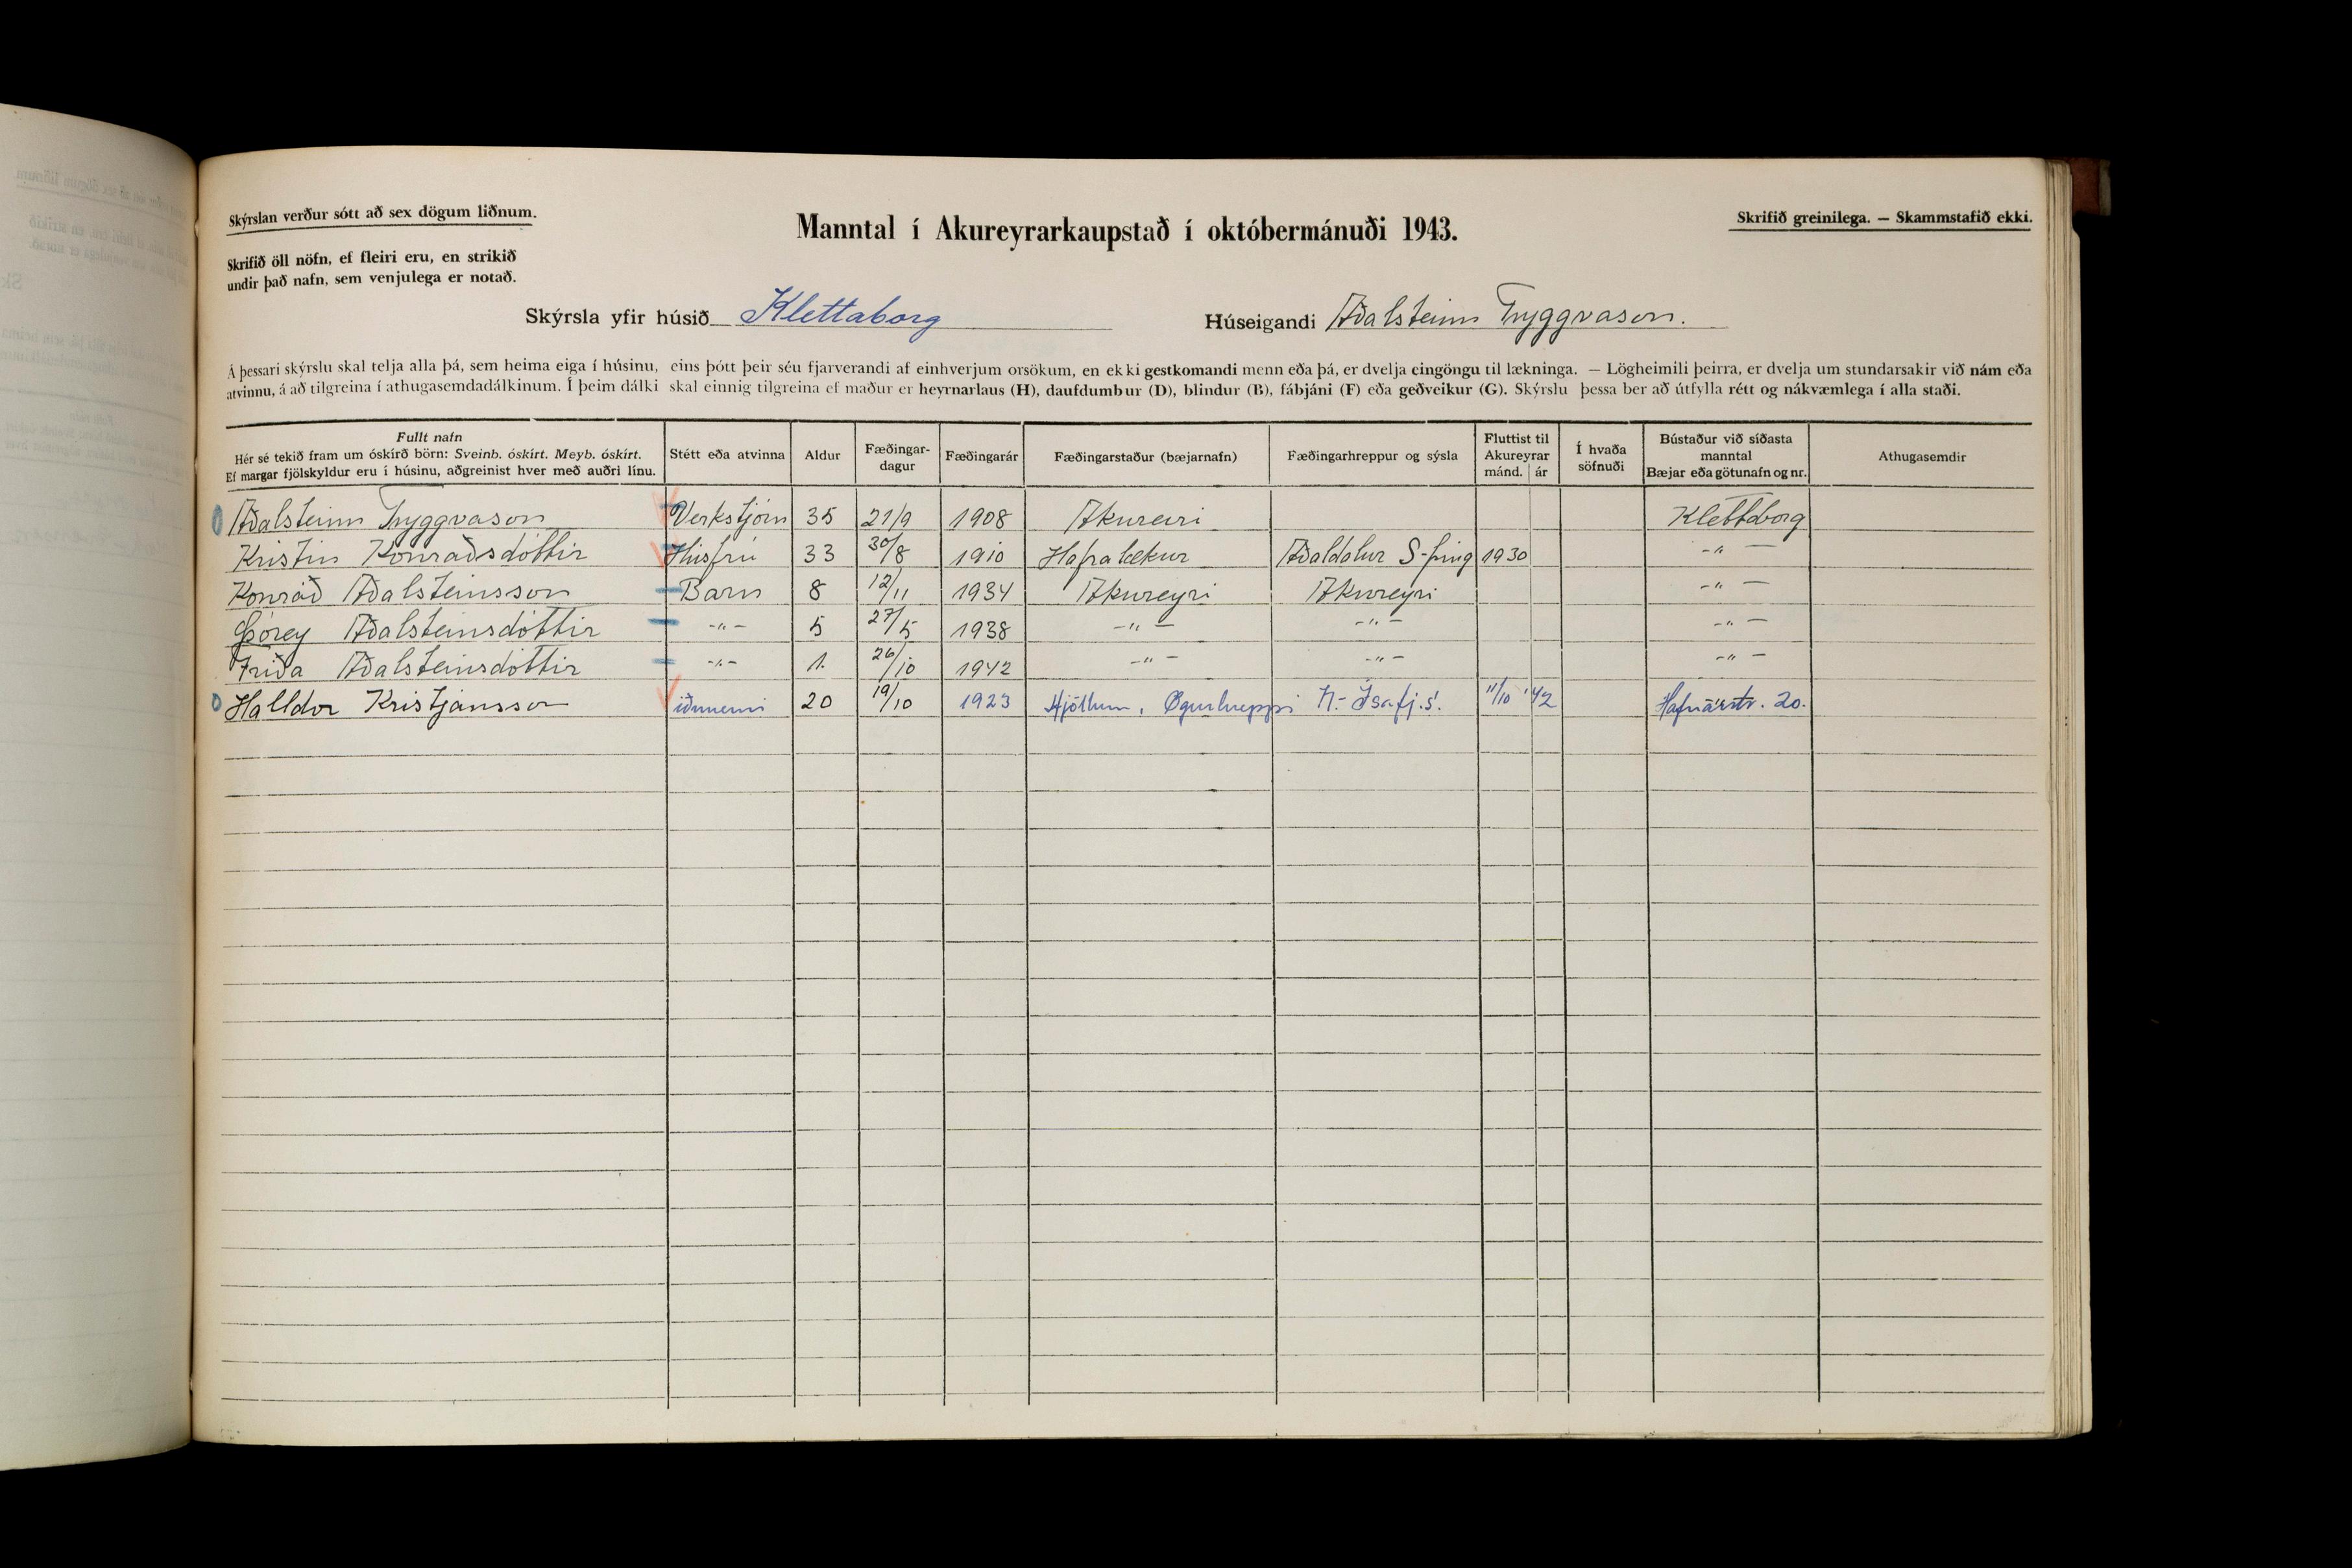 Skýrslan verður sótt að sex dögum liðnum.
Manntal í Akureyrarkaupstað í októbermánuði 1943.
Skrifið greinilega. — Skammstafið ekki.
Skrifið öll nöfn, ef fleiri eru, en strikið
undir það nafn, sem venjulega er notað.
Skýrsla yfir húsið Klettaborg Húseigandi Aðalsteinn Tryggvason.
Á þessari skýrslu skal telja alla þá, sem heima eiga í húsinu, eins þótt þeir séu fjarverandi af einhverjum orsökum, en ekki gestkomandi menn eða þá, er dvelja eingöngu til lækninga. — Lögheimili þeirra, er dvelja um stundarsakir við nám eða
atvinnu, á að tilgreina í athugasemdadálkinum. Í þeim dálki skal einnig tilgreina ef maður er heyrnarlaus (H), daufdumbur (D), blindur (B), fábjáni (F) eða geðveikur (G). Skýrslu þessa ber að útfylla rétt og nákvæmlega í alla staði.
Fullt nafn
Hér sé tekið fram um óskírð börn: Sveinb. óskírt. Meyb. óskírt.
Ef margar fjölskyldur eru í húsinu, aðgreinist hver með auðri línu.
Stétt eða atvinna
Aldur
Fæðingar-
dagur
Fæðingarár
Fæðingarstaður (bæjarnafn)
Fæðingarhreppur og sýsla
Fluttist til
Akureyrar
mánd. ár
Í hvaða
söfnuði
Bústaður við síðasta
manntal
Bæjar eða götunafn og nr.
Athugasemdir
Aðalsteinn Tryggvason Verkstjóri 35 21/9 1908 Akureiri Klettaborg
Kristin Konraðsdóttir Húsfrú 33 30/8 1910 Hafralækur Aðaldalur S-þing 1930 -"-
Konráð Aðalsteinsson Barn 8 12/11 1934 Akureyri Akureyri -"-
Þórey Aðalsteinsdóttir -"- 5 27/5 1938 -"- -"- -"-
Friða Aðalsteinsdóttir -"- 1. 26/10 1942 -"- -"- -"-
Halldor Kristjánsson iðnnemi 20 19/10 1923 Hjöllum, Ögurhreppi N.-Ísafj.s. 11/10 '42 Hafnarstr. 20.